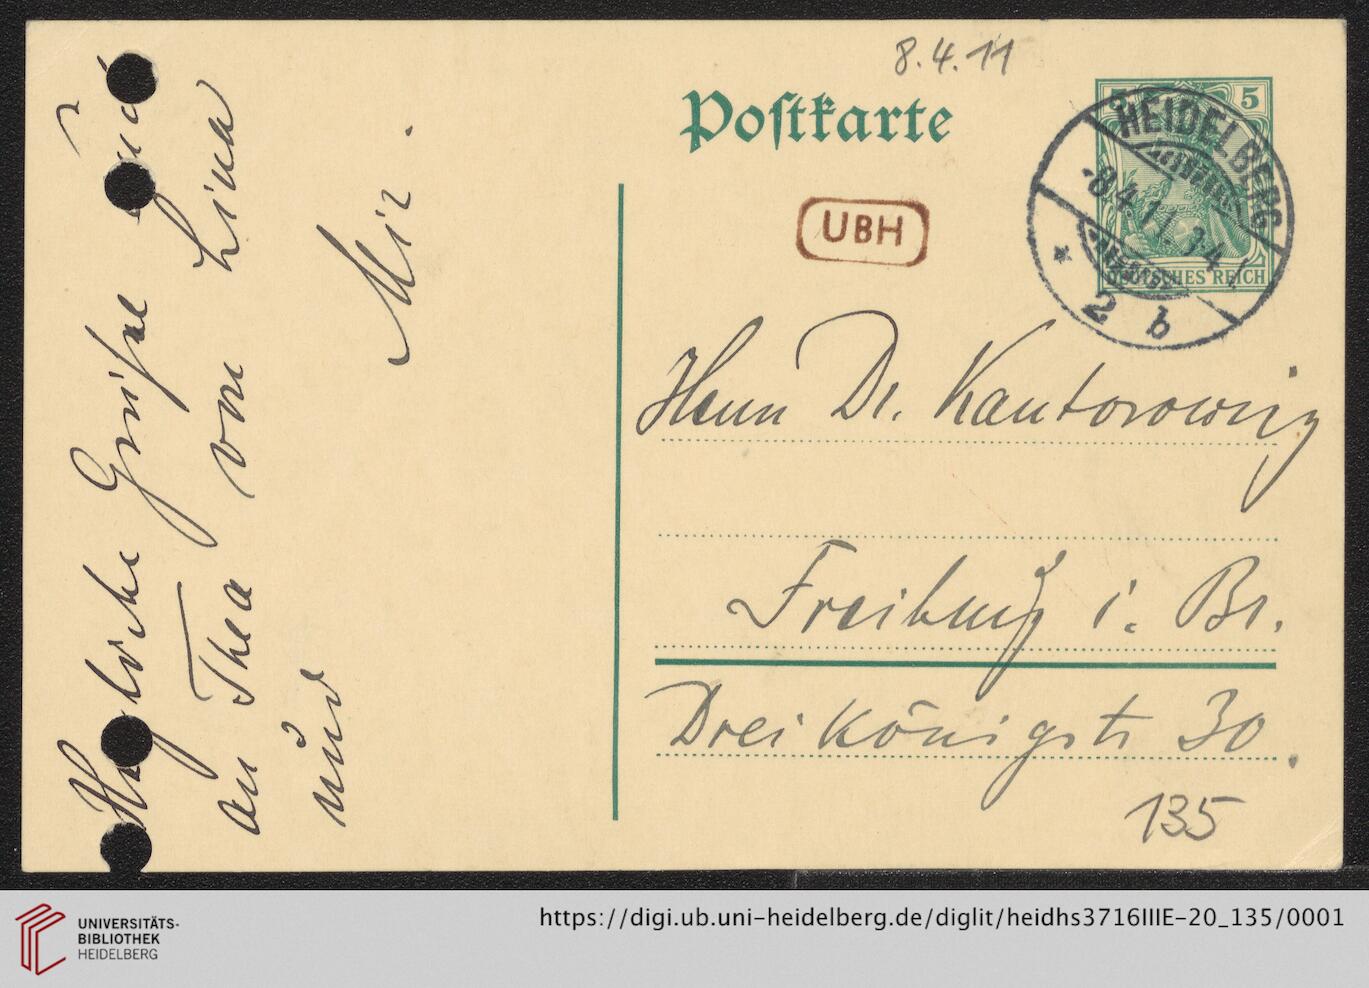 8.4.11
Postkarte
5
HEIDELBERG
-8.4.11. 3-4
* 2 b
DEUTSCHES REICH
UBH
Herrn Dr. Kantorowicz
Freiburg i. Br.
Dreikönigstr 30.
135
Herzliche Grüsse
an Thea von Lina
und Mir.
UNIVERSITÄTS-
BIBLIOTHEK
HEIDELBERG
https://digi.ub.uni-heidelberg.de/diglit/heidhs3716IIIE-20_135/0001